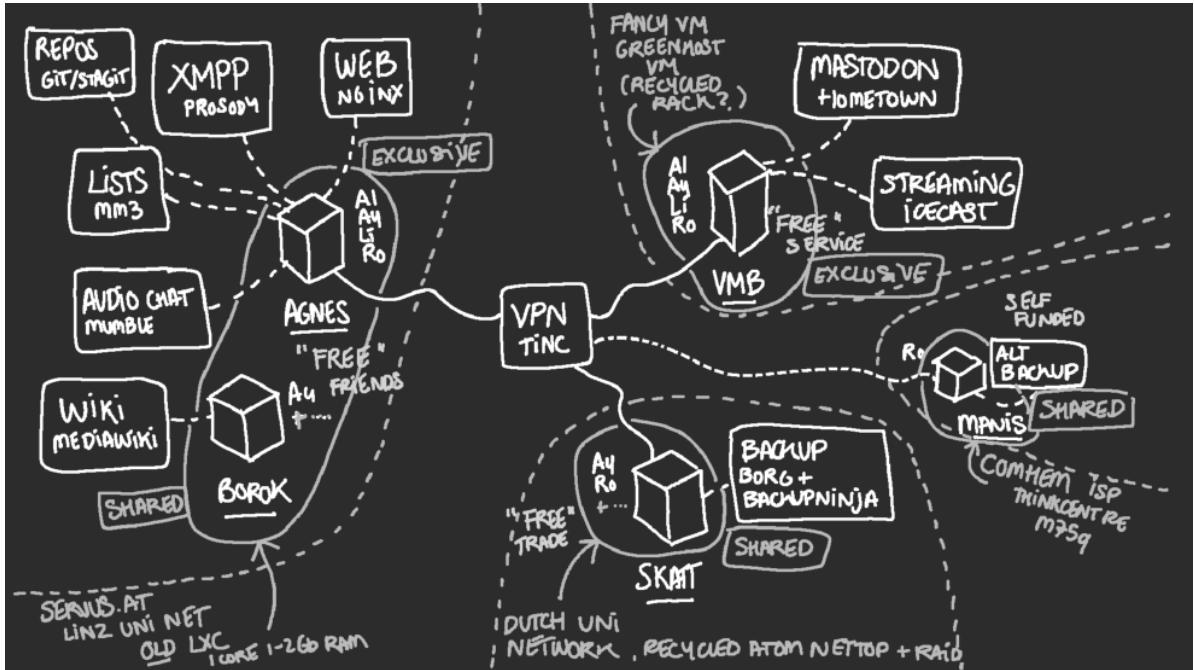 REPOS
GIT/STAGIT
XMPP
PROSODY
WEB
NGINX
EXCLUSIVE
LISTS
MM3
Al
Ay
Li
Ro
AUDIO CHAT
MUMBLE
AGNES
"FREE"
FRIENDS
WIKI
MEDIAWIKI
Ay
+ ....
BOROK
SHARED
SERVUS.AT
LINZ UNI NET
OLD LXC
1 CORE 1-2Gb RAM
VPN
TINC
FANCY VM
GREENHOST
VM
(RECYCLED
RACK?)
MASTODON
+HOMETOWN
STREAMING
ICECAST
Al
Ay
Li
Ro
"FREE"
SERVICE
VMB
EXCLUSIVE
SELF
FUNDED
Ro
ALT
BACKUP
SHARED
MANIS
COMHEM ISP
THINKCENTRE
M75q
Ay
Ro
+ ...
BACKUP
BORG +
BACKUPNINJA
"FREE"
TRADE
SHARED
SKAT
DUTCH UNI
NETWORK, RECYCLED ATOM NETTOP + RAID